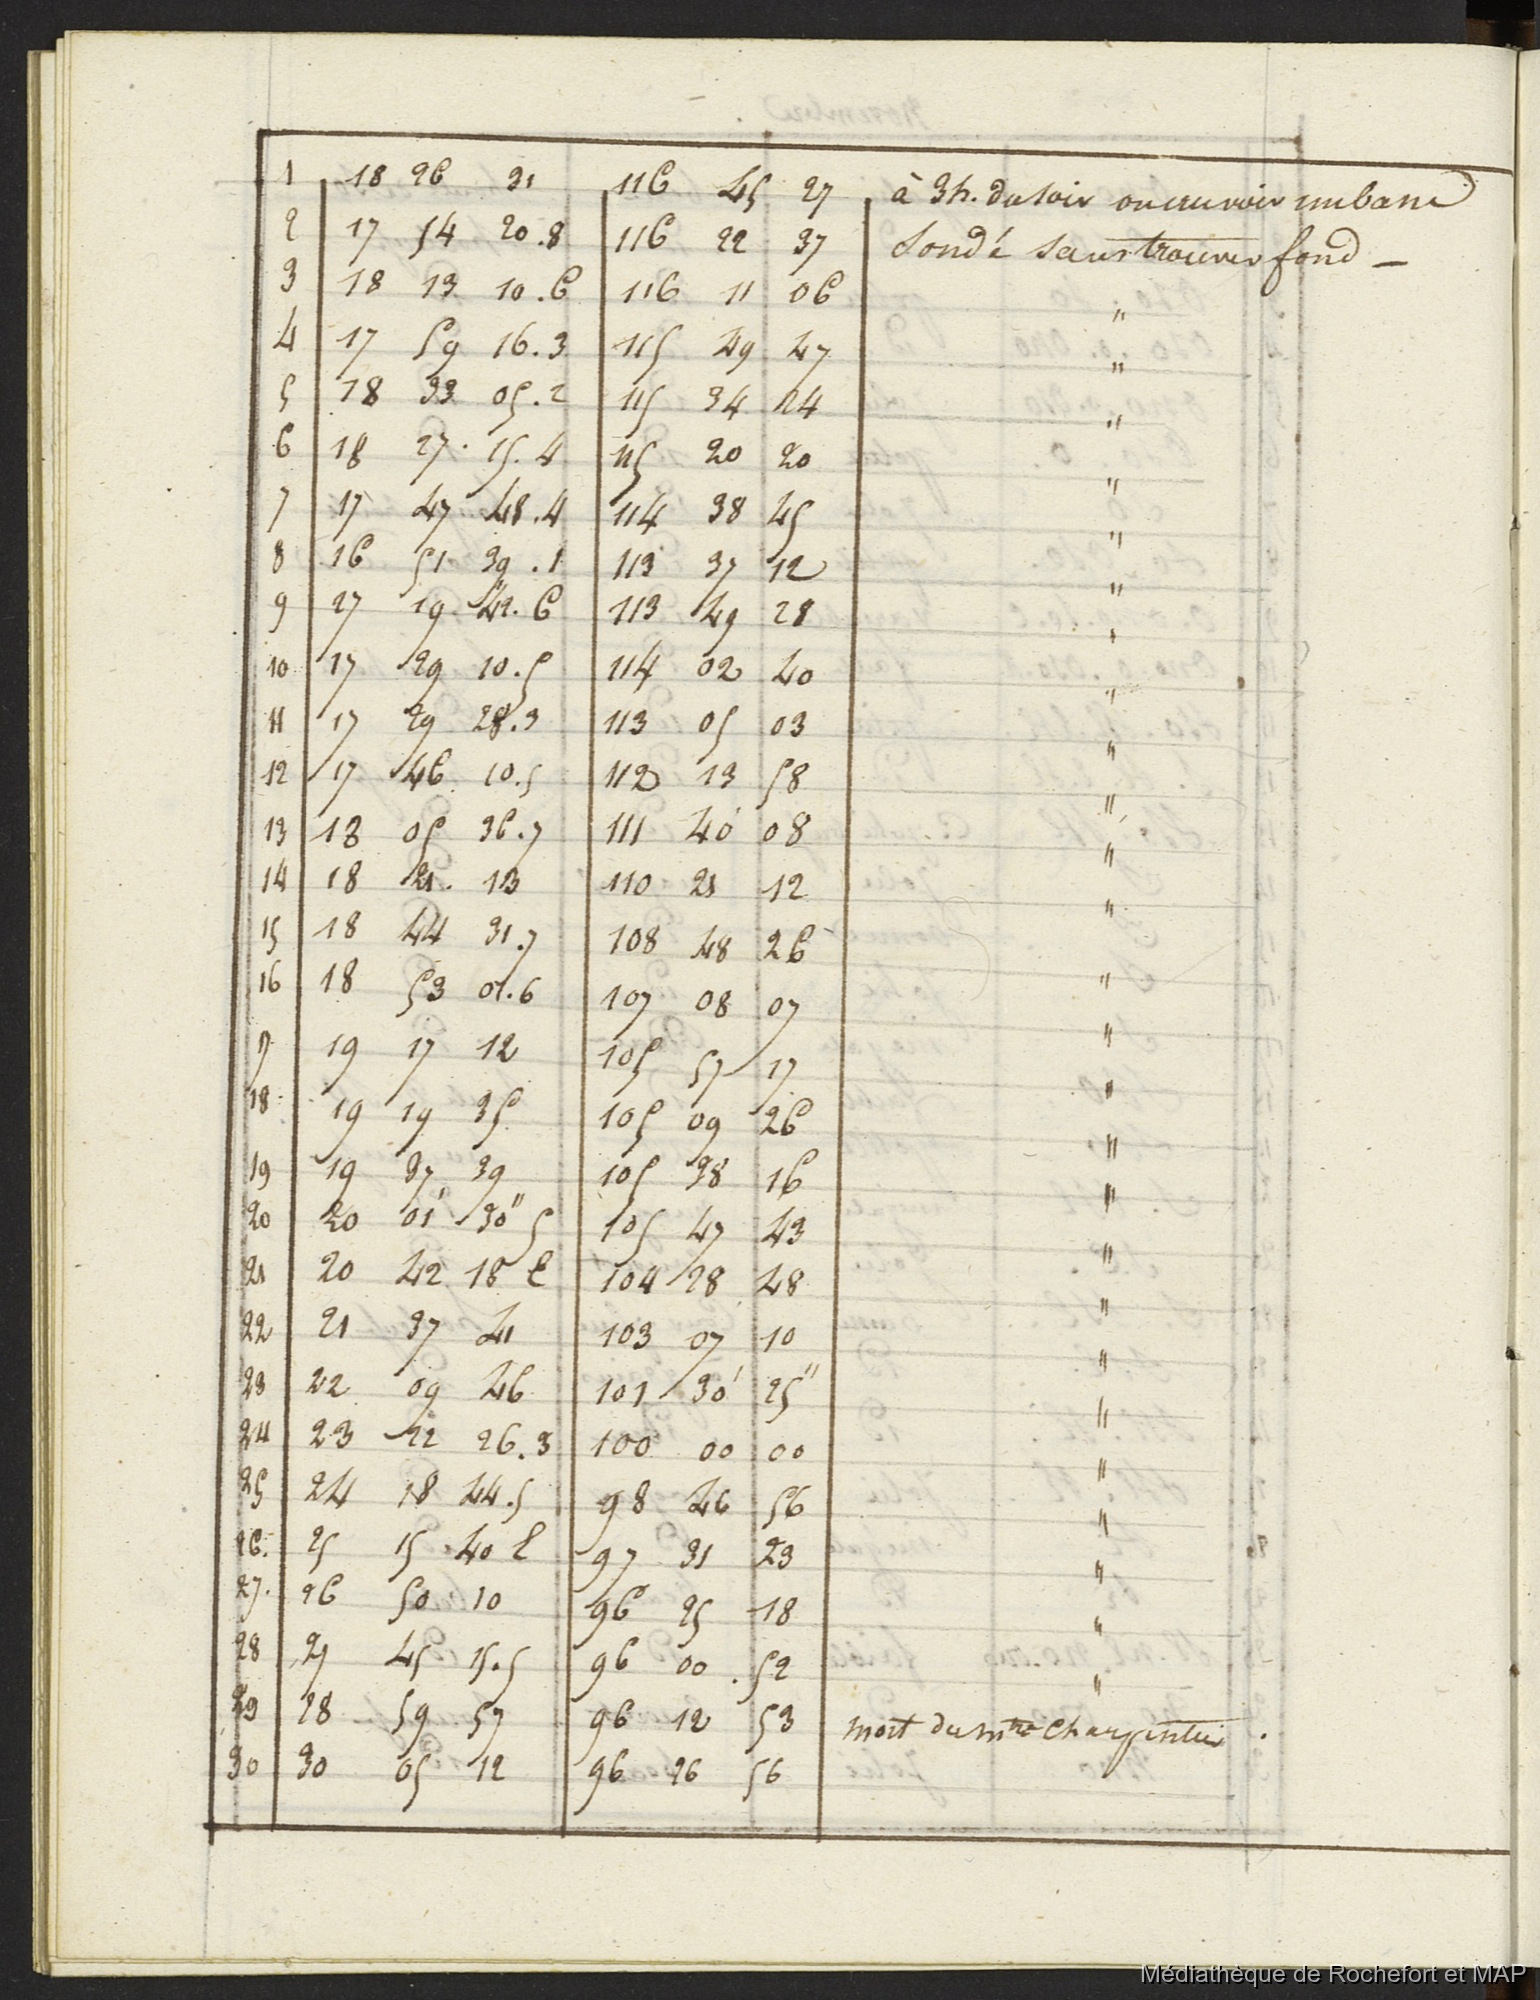 1 18 26 31 116 45 27 à 3h. du soir on cru voir un banc
2 17 54 20.8 116 22 37 Sondé sans trouver fond —
3 18 13 10.6 116 11 06 "
4 17 59 16.3 115 49 47 "
5 18 33 05.2 115 34 24 "
6 18 27 15.4 115 20 20 "
7 17 47 48.4 114 38 45 "
8 16 51 39.1 113 37 12 "
9 27 19 42.6 113 49 28 "
10 17 29 10.5 114 02 40 "
11 17 29 28.3 113 05 03 "
12 17 46 10.5 112 13 58 "
13 18 05 36.7 111 40 08 "
14 18 21 13 110 21 12 "
15 18 44 31.7 108 48 26 "
16 18 53 01.6 107 08 07 "
17 19 17 12 105 57 17 "
18 19 19 35 105 09 26 "
19 19 37 39 105 38 16 "
20 20 01' 30" 5 105 47 43 "
21 20 42 18 6 104 28 48 "
22 21 37 41 103 07 10 "
23 22 09 46 101 30' 25" "
24 23 22 26.3 100 00 00 "
25 24 18 44.5 98 46 56 "
26. 25 15 40 6 97 31 23 "
27. 26 50 10 96 25 18 "
28 27 45 15.5 96 00 52 "
29 28 59 57 96 12 53 mort du mtre Charpentier .
30 30 05 12 96 26 56
Médiathèque de Rochefort et MAP